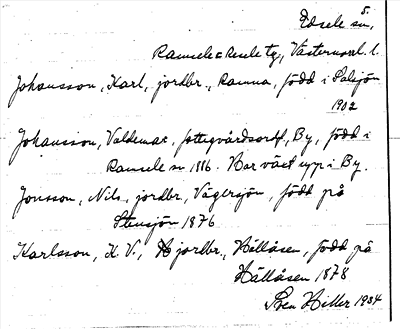 5.
Edsele sn,
Ramsele o Resele tg, Västernorrl. l.
Johansson, Karl, jordbr., Ramna, född i Salsjön
1902
Johansson, Valdemar, fattigvårdsordf, By, född i
Ramsele sn 1886. Har växt upp i By.
Jonsson, Nils, jordbr, Vägersjön, född på
Stensjön 1876.
Karlsson, K. V., jordbr., Hällåsen, född på
Hällåsen 1878
Sven Hiller 1934